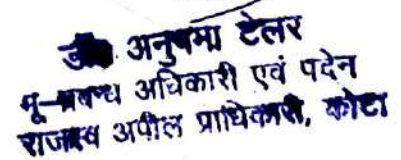 डॉ अनुपमा टेलर
भू-प्रबन्ध अधिकारी एवं पदेन
राजस्व अपील प्राधिकारी, कोटा